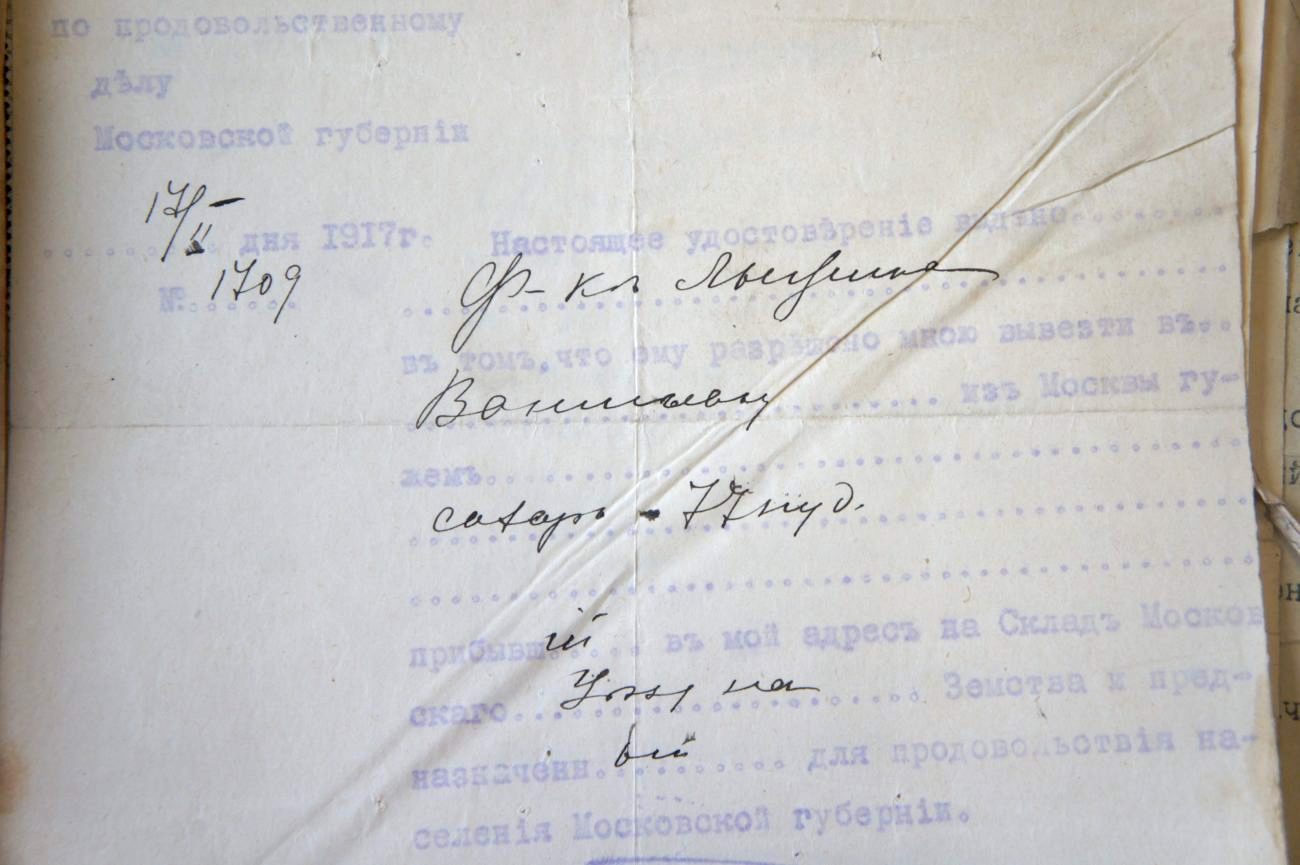 по продовольственному
дѣлу
Московской губернiи
17/II
дня 1917г. Настоящее удостовѣренiе выдано
№ 1709
Ф-кѣ
въ томъ, что ему разрѣшено мною вывезти въ
изъ Москвы гу-
жемъ
сахаръ - 77 пуд.
прибывшiй въ мой адресъ на Складъ Москов
скаго Земства и пред-
назначенный для продовольствiя на-
селенiя Московской губернiи.